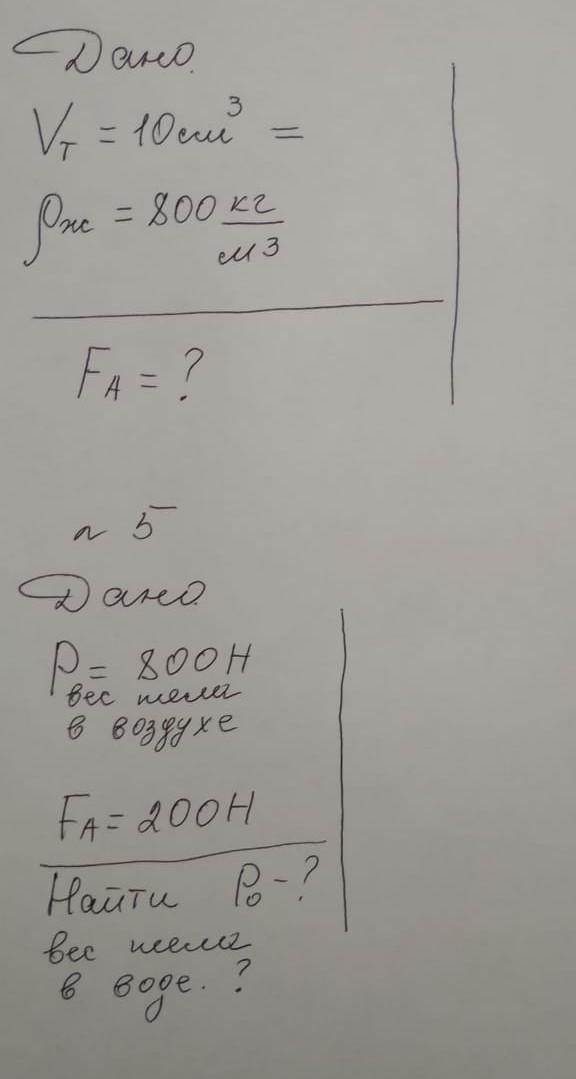 Дано.
Vт = 10 см³ =
ρж = 800 кг/м³
FА = ?
n 5
Дано
P = 800 Н
вес тела
в воздухе
FА = 200 Н
Найти P₀ - ?
вес тела
в воде. ?